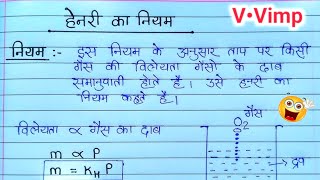 हेनरी का नियम
V•Vimp
नियम :- इस नियम के अनुसार ताप पर किसी
गैस की विलेयता गैसों के दाब
समानुवाती होते है। उसे हनरी का
नियम कहते है।
गैस
O2
विलेयता ∝ गैस का दाब
m ∝ P
m = KH P
द्रव